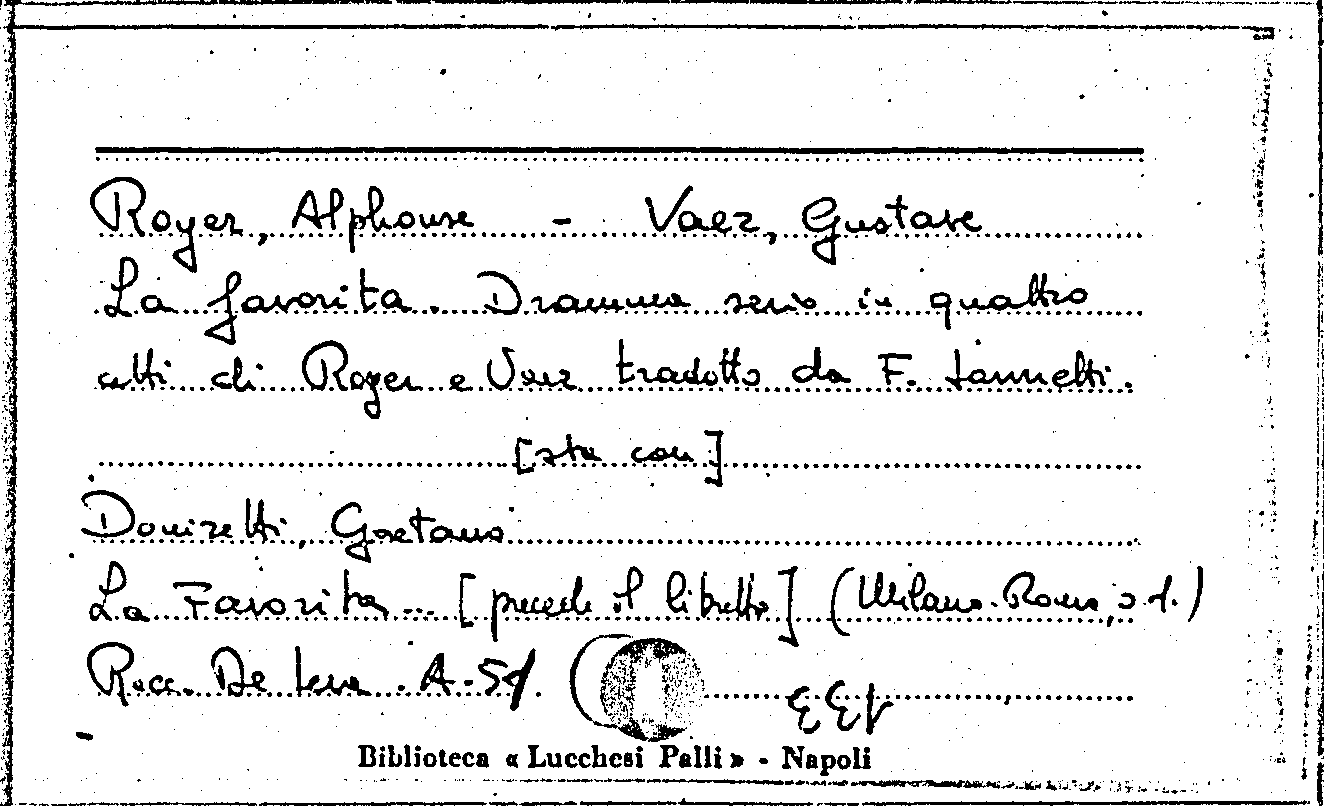 Royer, Alphonse - Vaez, Gustave
La favorita. Dramma serio in quattro
atti di Royer e Vaez tradotto da F. Jannetti.
[sta con]
Donizetti, Gaetano
La Favorita... [precede il libretto] (Milano-Roma, s.d.)
Racc. De A-
Biblioteca « Lucchesi Palli » - Napoli